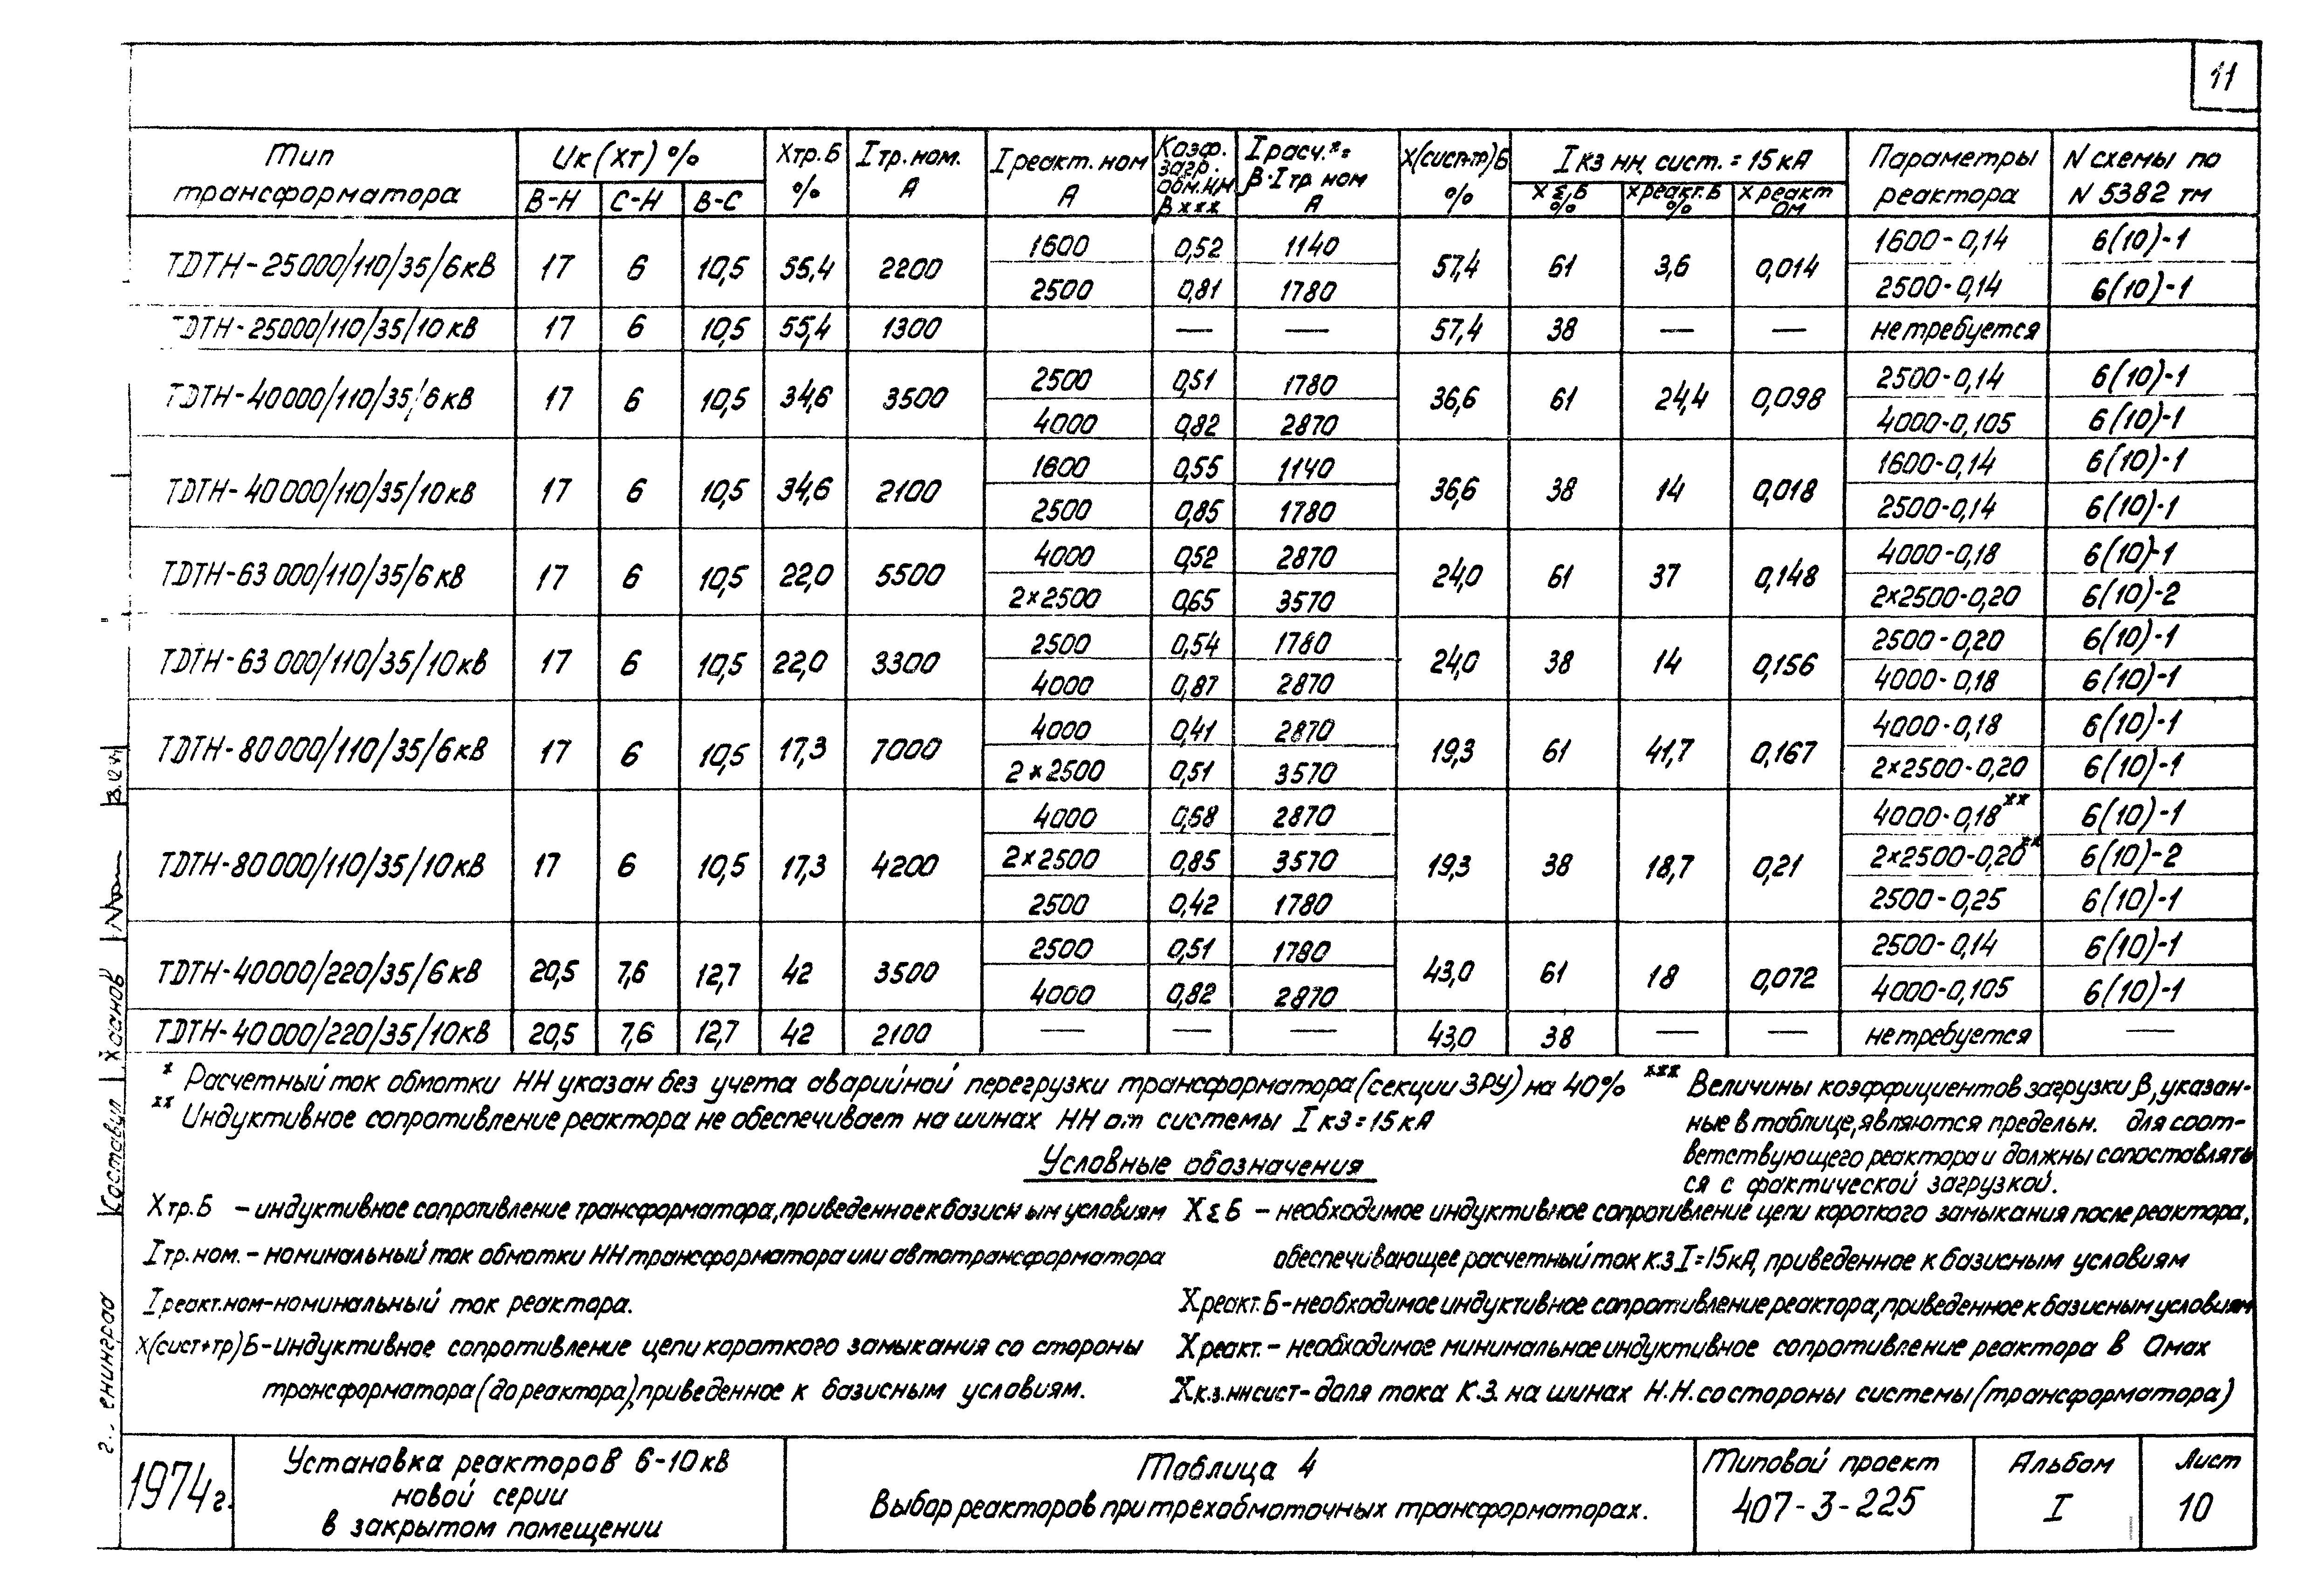 11
Тип трансформатора | Uк (Xт) % | Xтр.Б % | I тр. ном. А | I реакт. ном А | Коэф. загр. обм. НН β xxx | I расч.*= β·I тр ном А | X(сист+тр)Б % | I кз нн. сист. = 15 кА | Параметры реактора | N схемы по N 5382 тм
В-Н | С-Н | В-С | X Σ,Б % | X реакт. Б % | X реакт ом
ТДТН-25000/110/35/6кВ | 17 | 6 | 10,5 | 55,4 | 2200 | 1600 | 0,52 | 1140 | 57,4 | 61 | 3,6 | 0,014 | 1600-0,14 | 6(10)-1
2500 | 0,81 | 1780 | 2500-0,14 | 6(10)-1
ТДТН-25000/110/35/10 кВ | 17 | 6 | 10,5 | 55,4 | 1300 | — | — | 57,4 | 38 | — | — | не требуется
ТДТН-40000/110/35/6кВ | 17 | 6 | 10,5 | 34,6 | 3500 | 2500 | 0,51 | 1780 | 36,6 | 61 | 24,4 | 0,098 | 2500-0,14 | 6(10)-1
4000 | 0,82 | 2870 | 4000-0,105 | 6(10)-1
ТДТН-40000/110/35/10кВ | 17 | 6 | 10,5 | 34,6 | 2100 | 1600 | 0,55 | 1140 | 36,6 | 38 | 14 | 0,018 | 1600-0,14 | 6(10)-1
2500 | 0,85 | 1780 | 2500-0,14 | 6(10)-1
ТДТН-63000/110/35/6 кВ | 17 | 6 | 10,5 | 22,0 | 5500 | 4000 | 0,52 | 2870 | 24,0 | 61 | 37 | 0,148 | 4000-0,18 | 6(10)-1
2×2500 | 0,65 | 3570 | 2×2500-0,20 | 6(10)-2
ТДТН-63000/110/35/10кВ | 17 | 6 | 10,5 | 22,0 | 3300 | 2500 | 0,54 | 1780 | 24,0 | 38 | 14 | 0,156 | 2500-0,20 | 6(10)-1
4000 | 0,87 | 2870 | 4000-0,18 | 6(10)-1
ТДТН-80000/110/35/6кВ | 17 | 6 | 10,5 | 17,3 | 7000 | 4000 | 0,41 | 2870 | 19,3 | 61 | 41,7 | 0,167 | 4000-0,18 | 6(10)-1
2×2500 | 0,51 | 3570 | 2×2500-0,20 | 6(10)-1
ТДТН-80000/110/35/10кВ | 17 | 6 | 10,5 | 17,3 | 4200 | 4000 | 0,68 | 2870 | 19,3 | 38 | 18,7 | 0,21 | 4000-0,18** | 6(10)-1
2×2500 | 0,85 | 3570 | 2×2500-0,20** | 6(10)-2
2500 | 0,42 | 1780 | 2500-0,25 | 6(10)-1
ТДТН-40000/220/35/6кВ | 20,5 | 7,6 | 12,7 | 42 | 3500 | 2500 | 0,51 | 1780 | 43,0 | 61 | 18 | 0,072 | 2500-0,14 | 6(10)-1
4000 | 0,82 | 2870 | 4000-0,105 | 6(10)-1
ТДТН-40000/220/35/10кВ | 20,5 | 7,6 | 12,7 | 42 | 2100 | — | — | — | 43,0 | 38 | — | — | не требуется | —
* Расчетный ток обмотки НН указан без учета аварийной перегрузки трансформатора (секции ЗРУ) на 40%
** Индуктивное сопротивление реактора не обеспечивает на шинах НН от системы I кз = 15 кА
*** Величины коэффициентов загрузки β, указан-
ные в таблице, являются предельн. для соот-
ветствующего реактора и должны сопоставлять
ся с фактической загрузкой.
Условные обозначения
Xтр.Б – индуктивное сопротивление трансформатора, приведенное к базисным условиям
I тр. ном. – номинальный ток обмотки НН трансформатора или автотрансформатора
I реакт. ном – номинальный ток реактора.
X(сист+тр)Б – индуктивное сопротивление цепи короткого замыкания со стороны
трансформатора (до реактора), приведенное к базисным условиям.
X Σ Б – необходимое индуктивное сопротивление цепи короткого замыкания после реактора,
обеспечивающее расчетный ток к.з I=15кА, приведенное к базисным условиям
Xреакт. Б – необходимое индуктивное сопротивление реактора, приведенное к базисным условиям
X реакт. – необходимое минимальное индуктивное сопротивление реактора в Омах
Xк.з. нн сист – доля тока К.З. на шинах Н.Н. со стороны системы (трансформатора)
Составил Хасанов
1974 г.
Установка реакторов 6-10 кв
новой серии
в закрытом помещении
Таблица 4
Выбор реакторов при трехобмоточных трансформаторах.
Типовой проект
407-3-225
Альбом
I
Лист
10